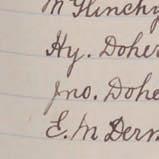 M Glinchy
Hy. Doher
Jno. Dohe
E. M Derm